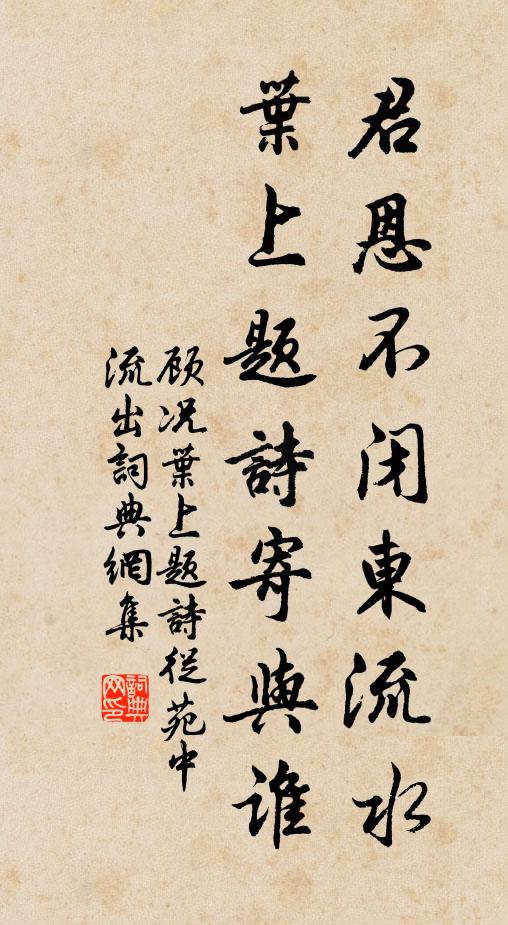 君恩不闭東流水
葉上題詩寄與誰
顾况葉上题詩從苑中
流出詞典網集
詞典
网印